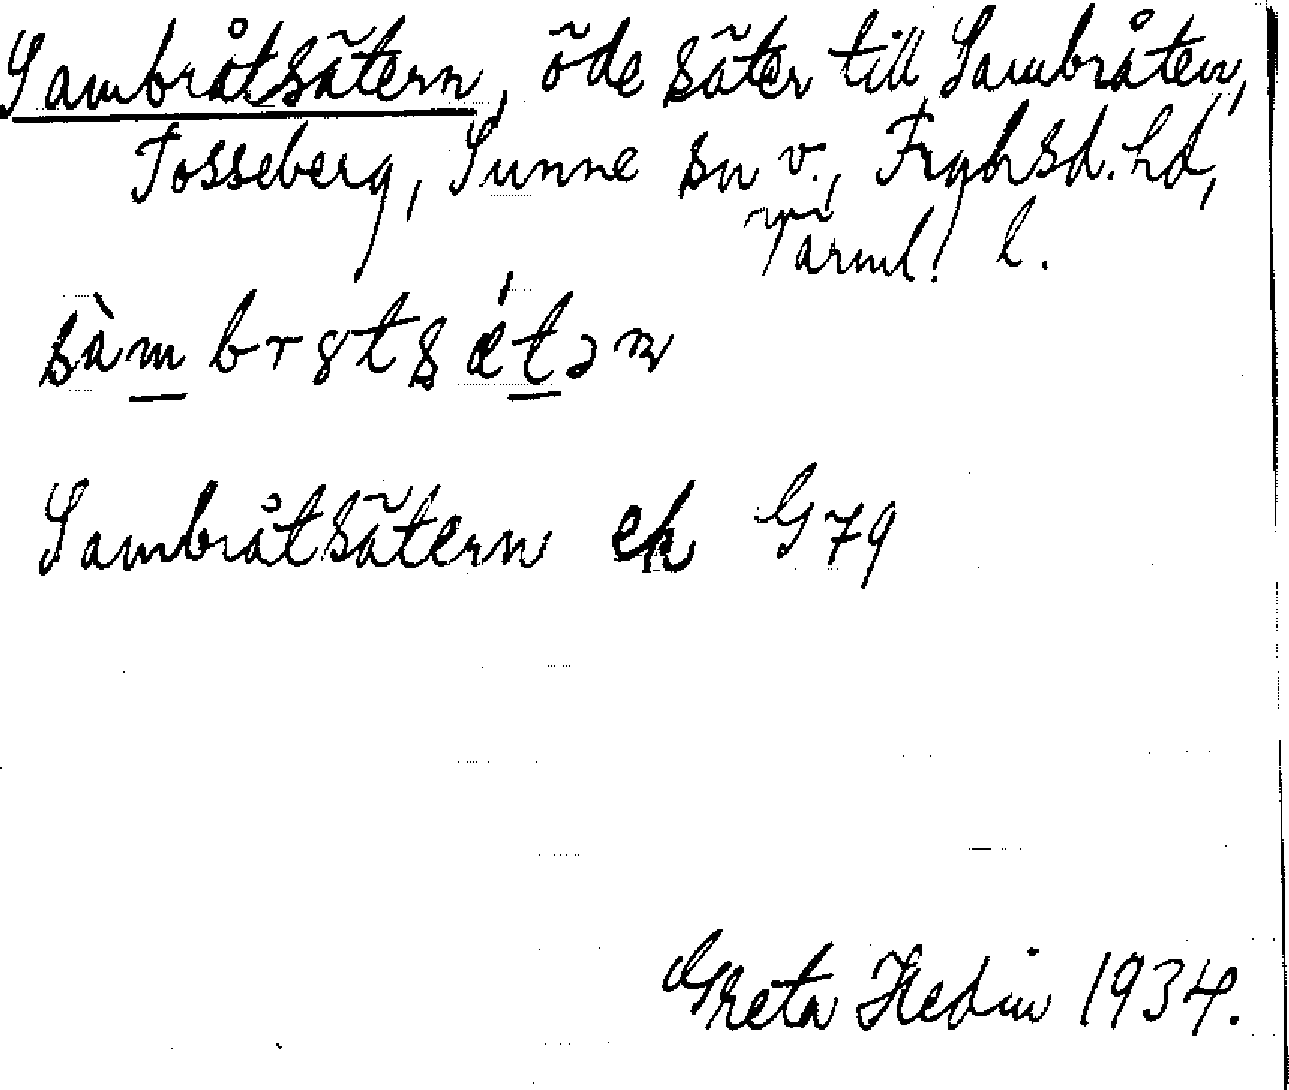 Sambråtsätern, öde säter till Sambråten,
Tosseberg, Sunne sn v., Frykdsd. hd,
Värml. l.
sàmbrɞtsǽtəɳ
Sambråtsätern ek G79
Greta Hedin 1934.